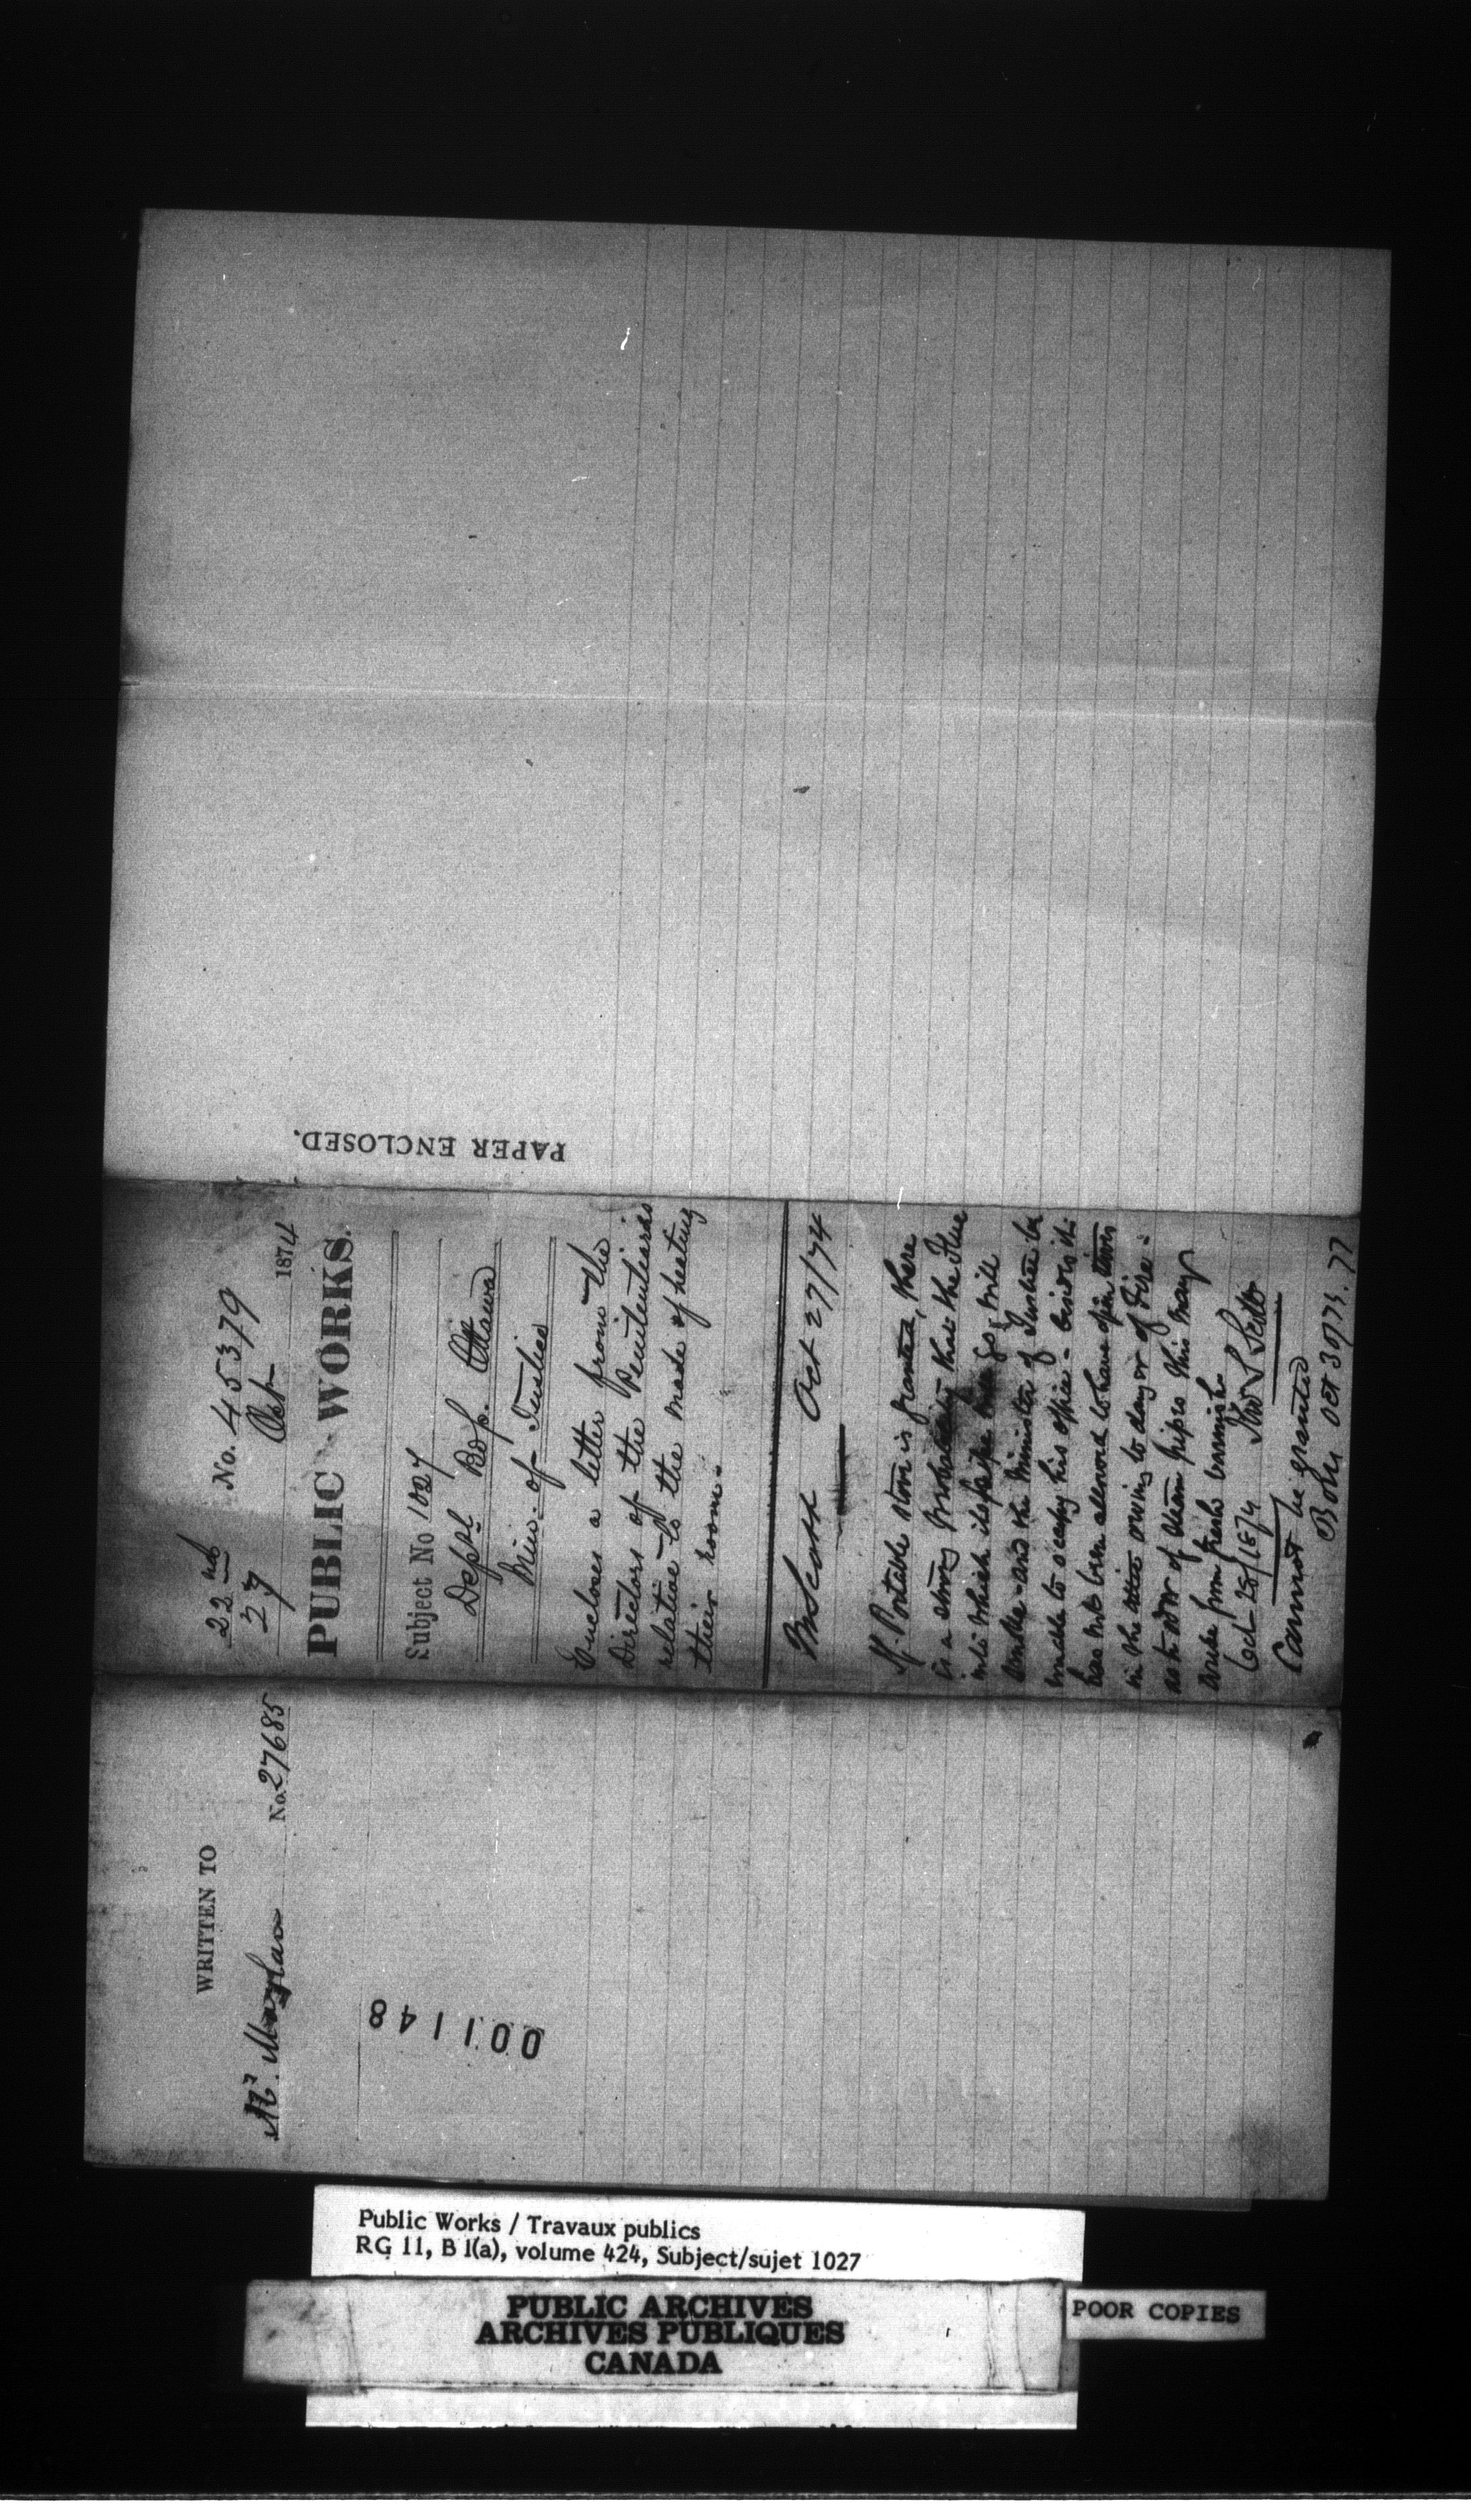 22nd
27 No. 45379
Oct 1874
PUBLIC WORKS.
Subject No 1027
Dept Bdgs. Ottawa
Min. of Justice
Encloses a letter from the
Directors of the Penitentiaries
relative to the mode of heating
their room.
Mr Scott Oct 27/74
If Portable stove is granted, there
is a strong probability that the Flue
into which its pipe may go, will
smoke and the Minister of Justice be
unable to occupy his office - besides it
has not been allowed to have open
in the owing to danger of Fire -
as to odor of steam pipes this may
arise from fresh varnish
Oct 28/1874 Thos S Scott
Cannot be granted
Oct 30/74.
PAPER ENCLOSED.
WRITTEN TO
No. 27685
001148
Public Works / Travaux publics
RG 11, B 1(a), volume 424, Subject/sujet 1027
PUBLIC ARCHIVES
ARCHIVES PUBLIQUES
CANADA
POOR COPIES